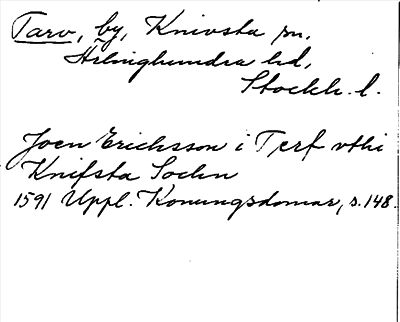 Tarv, by, Knivsta sn,
Ärlinghundra hd,
Stockh. l.
Joen Erichsson i Terf vthi
Knifsta Sochn
1591 Uppl. Konungsdomar, s. 148.